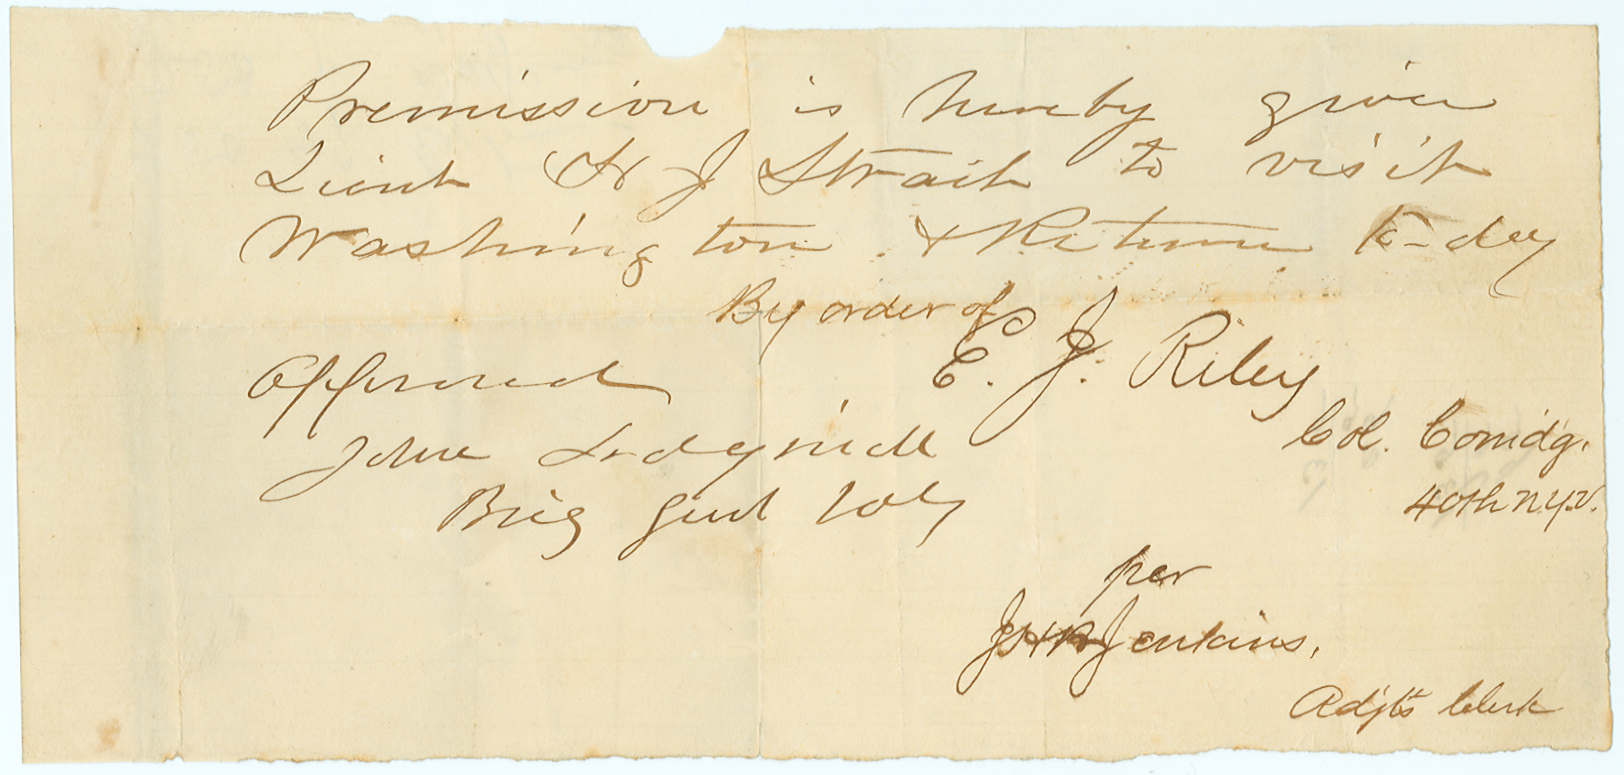 Premission is hereby given
Lieut H J Strait to visit
Washington & Return to-day
By order of
E. J. Riley
Col. Comdg.
40th N.Y.V.
Approved
John Sedgwick
Brig Genl Vols
per
Jenkins,
Adjts Clerk